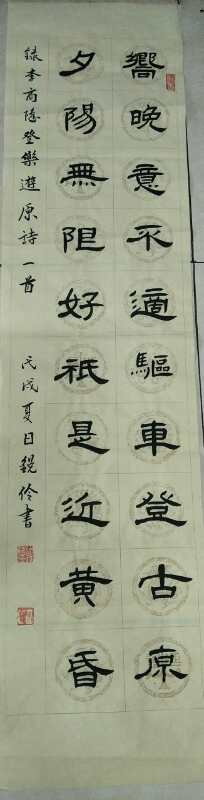 嚮晚意不適驅車登古原
夕陽無阻好祇是近黄昏
錄李商隱登樂遊原詩一首 戊戌夏日銳伶書